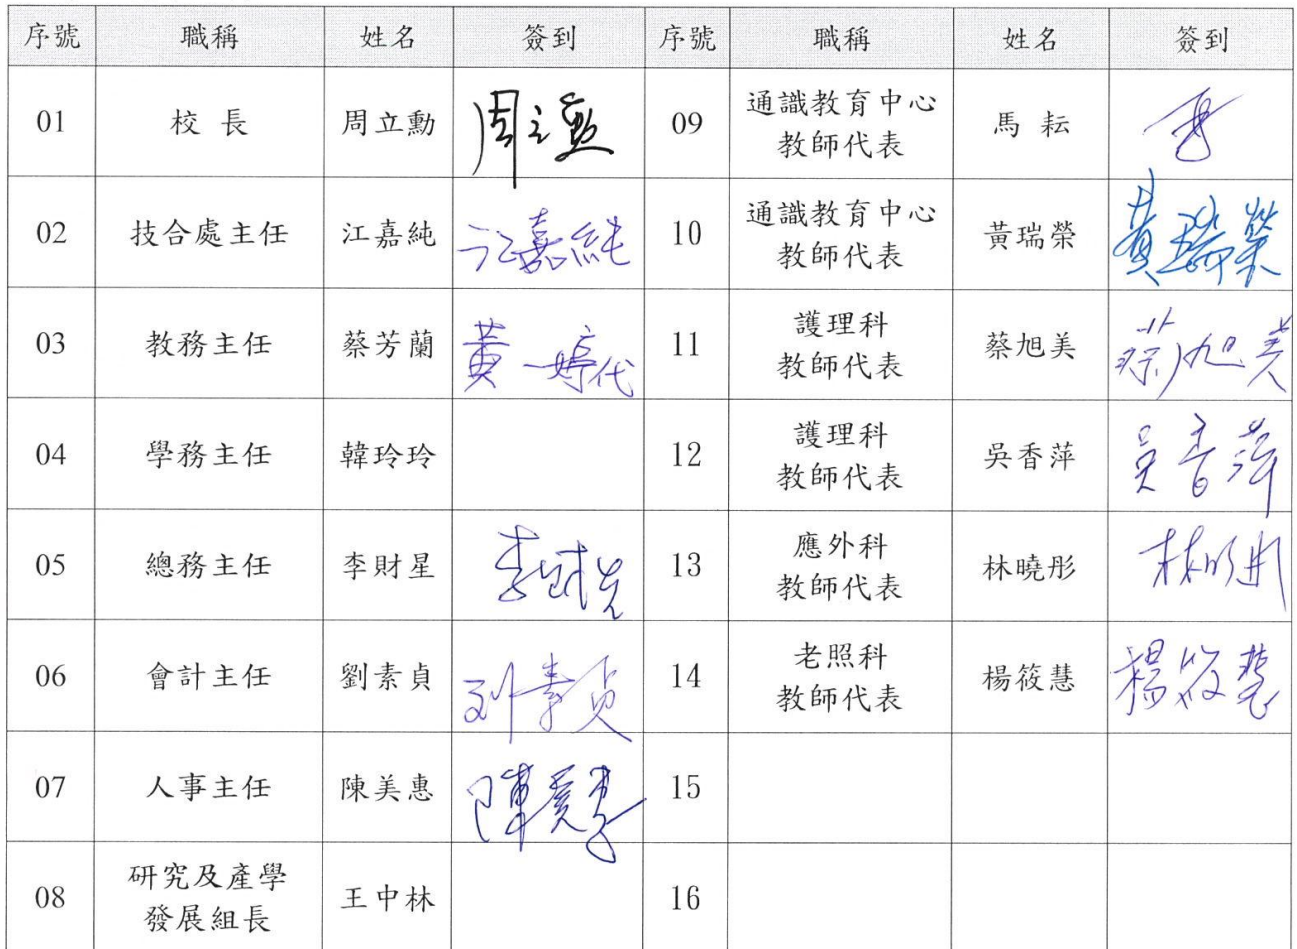 序號 職稱 姓名 簽到 序號 職稱 姓名 簽到
01 校 長 周立勳 周立勳 09 通識教育中心 教師代表 馬 耘
02 技合處主任 江嘉純 江嘉純 10 通識教育中心 教師代表 黃瑞榮 黃瑞榮
03 教務主任 蔡芳蘭 黃一婷代 11 護理科 教師代表 蔡旭美 蔡旭美
04 學務主任 韓玲玲 12 護理科 教師代表 吳香萍 吳香萍
05 總務主任 李財星 李財星 13 應外科 教師代表 林曉彤 林曉彤
06 會計主任 劉素貞 刘素貞 14 老照科 教師代表 楊筱慧 楊筱慧
07 人事主任 陳美惠 陳美惠 15
08 研究及產學 發展組長 王中林 16